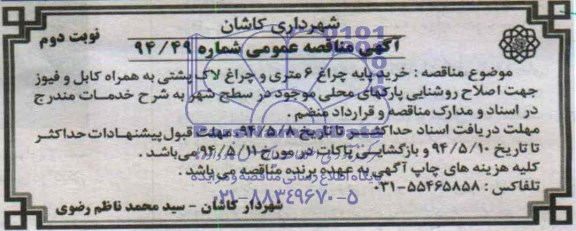 شهرداری کاشان
نوبت دوم
آگهی مناقصه عمومی شماره ۹۴/۴۹
موضوع مناقصه : خرید پایه چراغ ۶ متری و چراغ لاک پشتی به همراه کابل و فیوز
جهت اصلاح روشنایی پارکهای محلی موجود در سطح شهر به شرح خدمات مندرج
در اسناد و مدارک مناقصه و قرارداد منضم .
مهلت دریافت اسناد حداکثر تا تاریخ ۹۴/۵/۸، مهلت قبول پیشنهادات حداکثر
تا تاریخ ۹۴/۵/۱۰ و بازگشایی پاکات در مورخ ۹۴/۵/۱۱ می باشد .
کلیه هزینه های چاپ آگهی به عهده برنده مناقصه می باشد .
پایگاه اطلاع رسانی مناقصه و مزایده
تلفاکس : ۵۵۴۶۵۸۵۸-۰۳۱
۰۲۱-۸۸۳۴۹۶۷۰-۵
شهردار کاشان - سید محمد ناظم رضوی